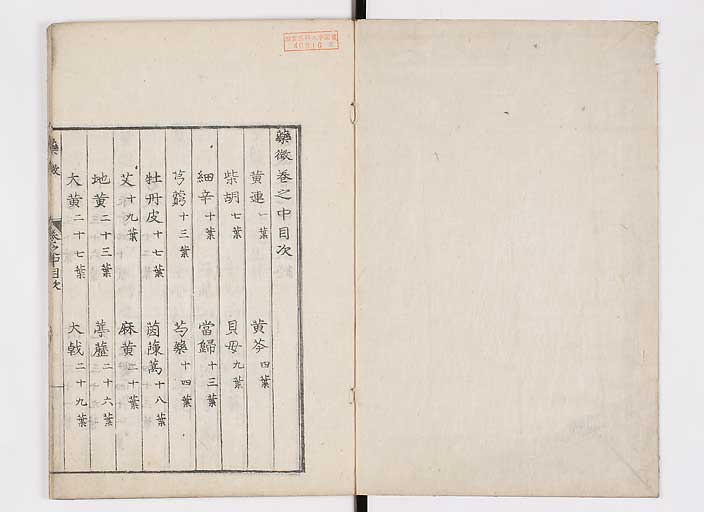 藥徵卷之中目次
黃連 一葉 黃芩 四葉
柴胡 七葉 貝母 九葉
細辛 十葉 當歸 十三葉
芎藭 十三葉 芍藥 十四葉
牡丹皮 十七葉 茵蔯蒿 十八葉
艾 十九葉 麻黃 二十葉
地黃 二十三葉 葶藶 二十六葉
大黃 二十七葉 大戟 二十九葉
藥徵 卷之中目次
40816